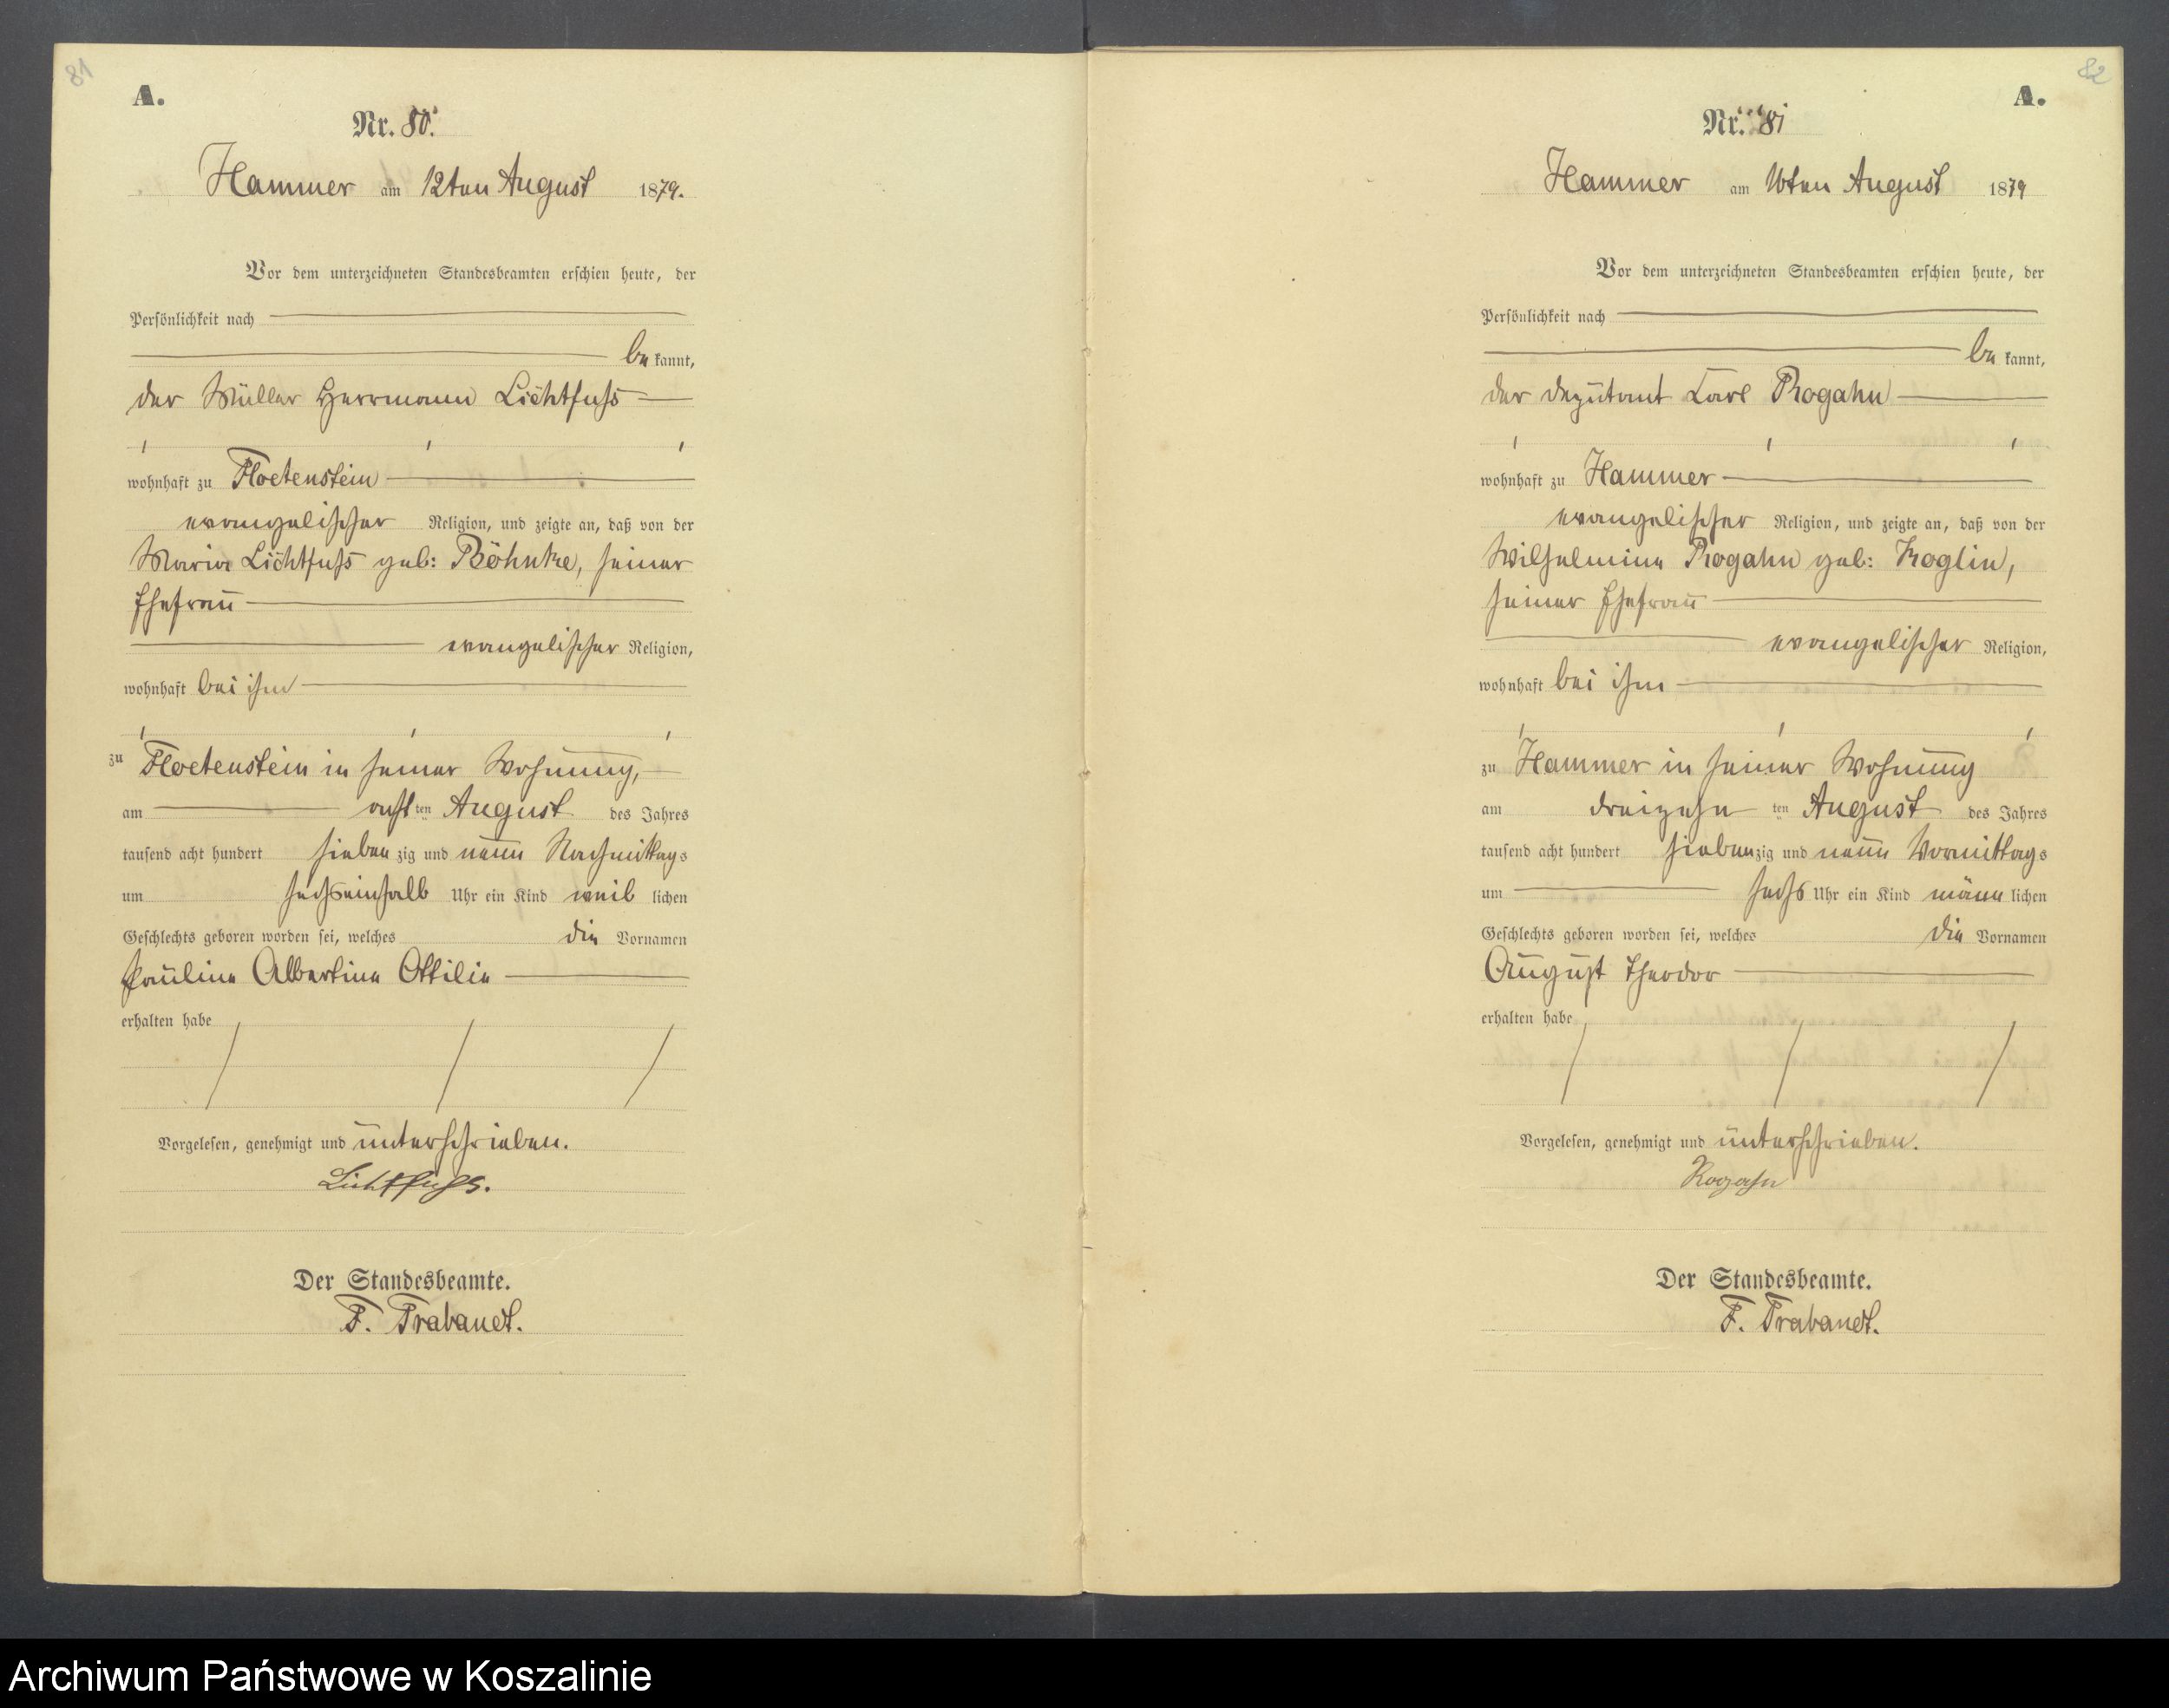 81
A.
Nr. 80.
Hammer am 12ten August 1879.
Vor dem unterzeichneten Standesbeamten erschien heute, der
Persönlichkeit nach
bekannt,
der Müller Herrmann Lichtfuß
wohnhaft zu Floetenstein
evangelischer Religion, und zeigte an, daß von der
Maria Lichtfuß geb: Böhnke, seiner
Ehefrau
evangelischer Religion,
wohnhaft bei ihm
zu Floetenstein in seiner Wohnung,
am achtten August des Jahres
tausend acht hundert siebenzig und neun Nachmittags
um sechseinhalb Uhr ein Kind weiblichen
Geschlechts geboren worden sei, welches die Vornamen
Pauline Albertine Ottilie
erhalten habe
Vorgelesen, genehmigt und unterschrieben.
Lichtfuß.
Der Standesbeamte.
F. Trabandt.
82
A.
Nr. 81
Hammer am August 1879
Vor dem unterzeichneten Standesbeamten erschien heute, der
Persönlichkeit nach
bekannt,
der Deputant Carl Rogahn
wohnhaft zu Hammer
evangelischer Religion, und zeigte an, daß von der
Wilhelmine Rogahn geb: Koglin,
seiner Ehefrau
evangelischer Religion,
wohnhaft bei ihm
zu Hammer in seiner Wohnung
am dreizehnten August des Jahres
tausend acht hundert siebenzig und neun Vormittags
um sechs Uhr ein Kind männlichen
Geschlechts geboren worden sei, welches die Vornamen
August Theodor
erhalten habe
Vorgelesen, genehmigt und unterschrieben.
Rogahn
Der Standesbeamte.
F. Trabandt.
Archiwum Państwowe w Koszalinie